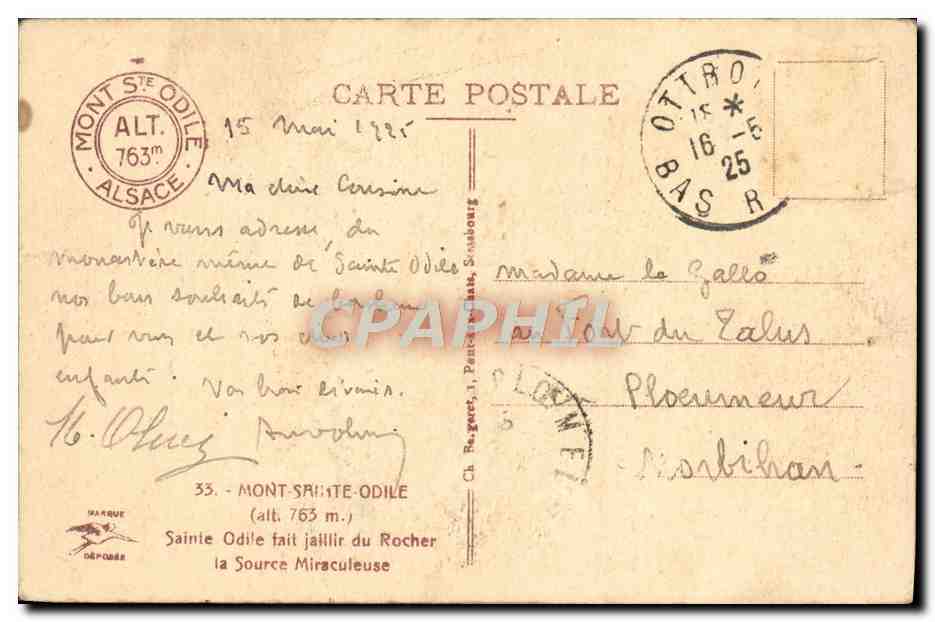 CARTE POSTALE
MONT STE ODILE
ALT.
763m
ALSACE
OTTRO
16 - 5
25
BAS R
15 Mai 1925
Ma chère Cousine
Je vous adresse, du
monastère même de Sainte Odile
nos bons souhaits de bonheur
pour vous et vos chers
enfants!
Vos
33. - MONT-SAINTE-ODILE
(alt. 763 m.)
Sainte Odile fait jaillir du Rocher
la Source Miraculeuse
MARQUE
DÉPOSÉE
Ch. Bergeret, 1, Strasbourg
madame le Gallo
au Fort du Talus
Ploemeur
Morbihan
PLOEMEU
CPAPHIL